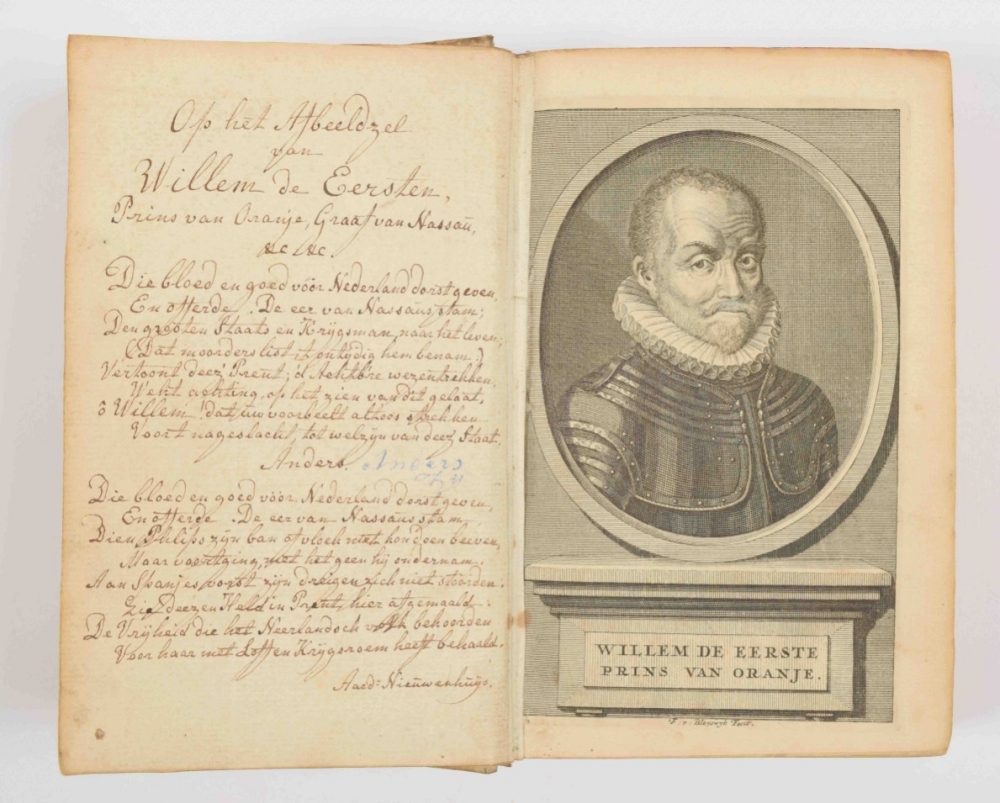 Op het Afbeeldzel
van
Willem de Eersten,
Prins van Oranje, Graaf van Nassaú,
&c &c.
Die bloed en goed vóór Nederland dorst geven,
En offerde. De eer van Nassaús stam;
Den grooten Staats en Krijgsman, naar het leven;
(Dat moorders list ontydig hem benam.)
Vertoont deez' Prent; d'Achtb're wezentrekken,
Wekt achting, op het zien van dit gelaat,
ô Willem! dat úw voorbeelt altoos strekken
Voor't nageslacht, tot welzijn van deez' Staat.
Anders. Anders
Die bloed en goed vóór Nederland dorst geven,
En offerde. De eer van Nassaús stam
Dien Philips zijn ban of vloek niet kon doen beeven,
Maar voortging, met het geen hij ondernam.
Aan Spanjes vorst zijn dreigen zich niet stoorden.
Zie deezen Held in Prent, hier afgemaald
De Vrijheid die het Neerlandsch volk behoorden
Voor haar met Loff en Krijgsroem heeft behaald.
Aard: Nieuwenhuijs.
WILLEM DE EERSTE
PRINS VAN ORANJE.